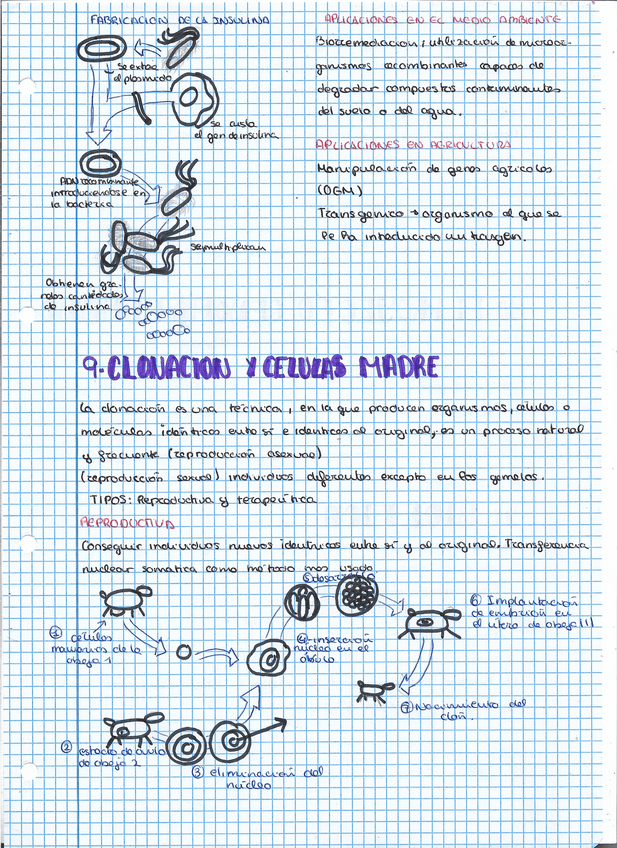 FABRICACION DE LA INSULINA
se extrae
el plasmido
se aisla
el gen de insulina
ADN recombinante
introduciendose en
la bacteria
se multiplican
Obtienen gra-
ndes cantidades
de insulina
APLICACIONES EN EL MEDIO AMBIENTE
Biorremediacion: utilización de microor-
ganismos recombinantes capaces de
degradar compuestos contaminantes
del suelo o del agua.
APLICACIONES EN AGRICULTURA
Manipulación de genes agricolas
(OGM)
Transgenico → organismo al que se
le ha introducido un trasgen.
9-CLONACION Y CELULAS MADRE
La clonación es una técnica, en la que producen organismos, células o
moléculas idénticos entre sí e identicos al original, es un proceso natural
y frecuente (reproducción asexual)
(reproducción sexual) individuos diferentes excepto en los gemelos.
TIPOS: Reproductiva y terapeútica
REPRODUCTIVA
Conseguir individuos nuevos identicos entre sí y al original. Transferencia
nuclear somática como método mas usado
① células
mamarias de la
oveja 1
② estado de
de oveja 2
③ eliminación del
núcleo
④ inserción
núcleo en el
óvulo
⑤
⑥ Implantación
de embrión en
el utero de oveja III
⑦ Nacimiento del
clon.